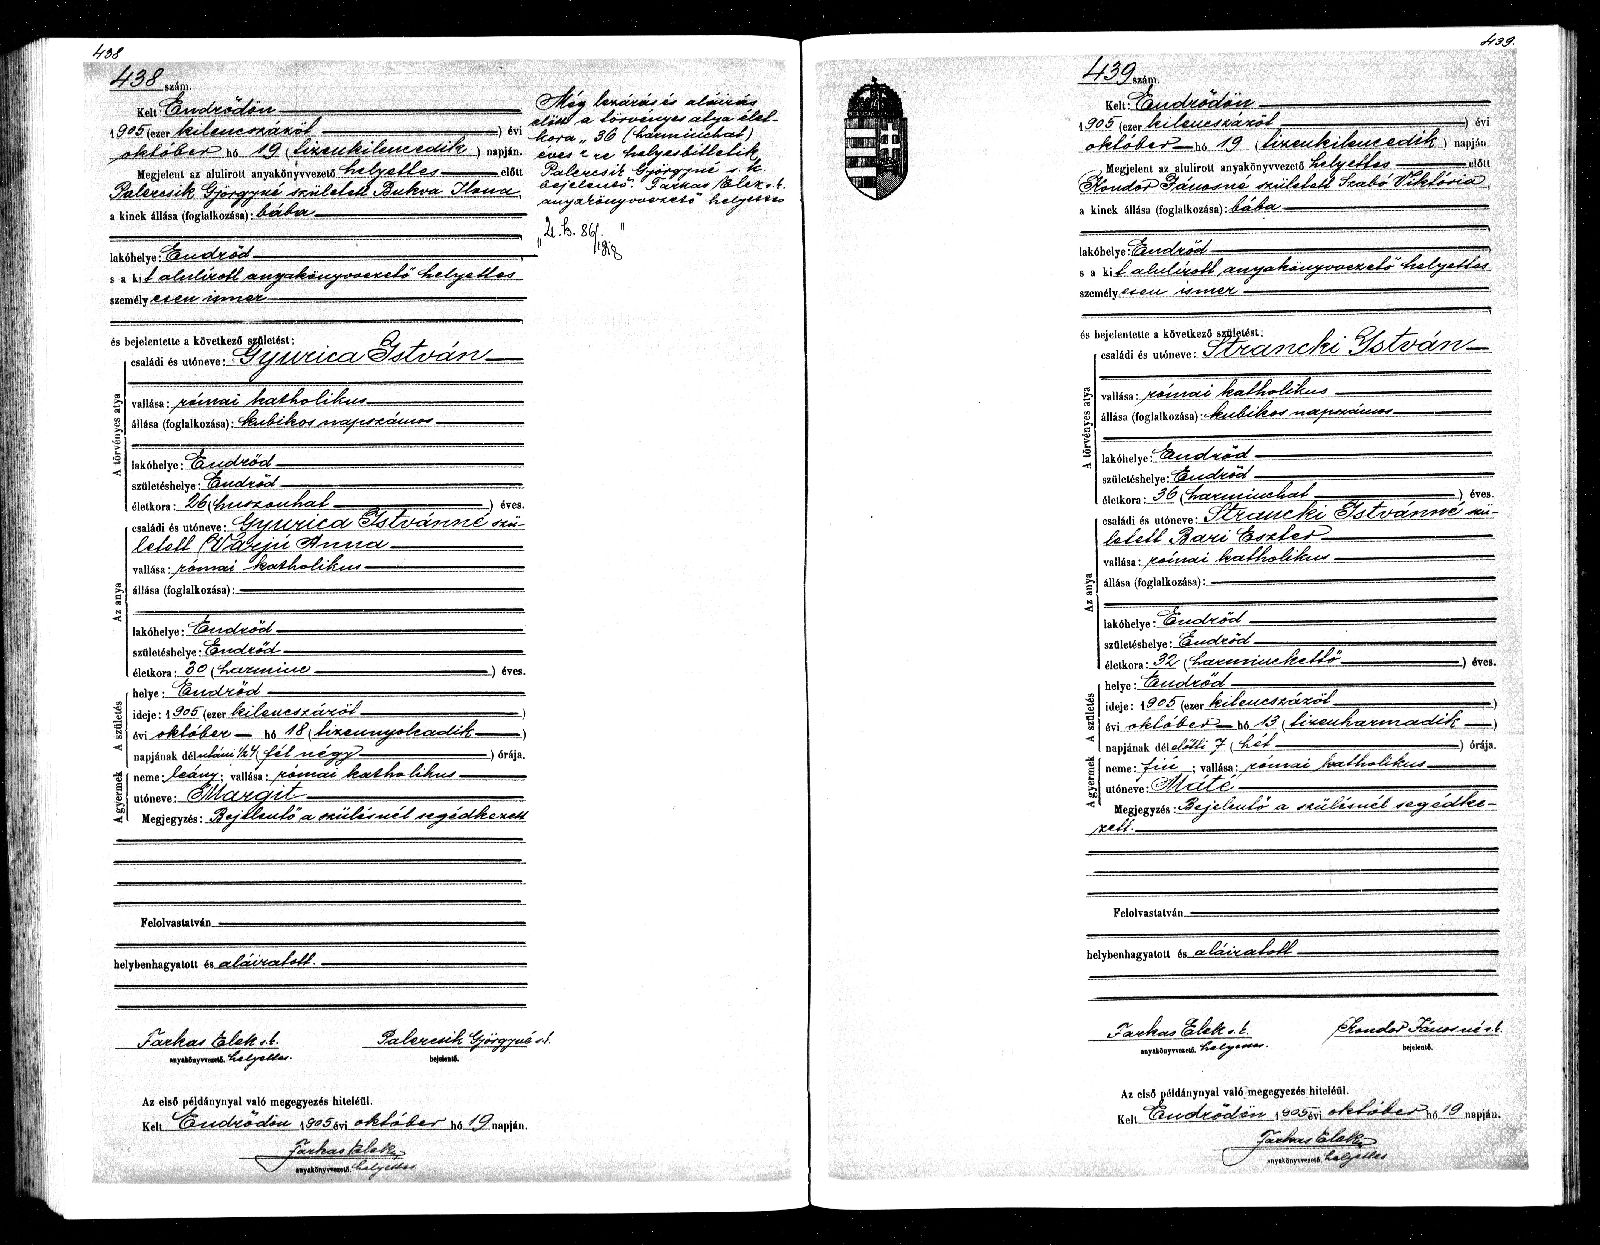 438
438 szám.
Kelt Endrődön
1905 (ezer kilencszázöt ) évi
október hó 19 (tizenkilencedik ) napján.
Megjelent az alulirott anyakönyvvezető helyettes előtt
Palercsik Györgyné született Bukva Ilona,
a kinek állása (foglalkozása): bába
lakóhelye: Endrőd
s a kit alulírott anyakönyvvezető helyettes
személyesen ismer
és bejelentette a következő születést:
A törvényes atya
családi és utóneve: Gyurica István
vallása: római katholikus
állása (foglalkozása): kubikos napszámos
lakóhelye: Endrőd
születéshelye: Endrőd
életkora: 26 (huszonhat ) éves.
Az anya
családi és utóneve: Gyurica Istvánné szü-
letett Varjú Anna
vallása: római katholikus
állása (foglalkozása):
lakóhelye: Endrőd
születéshelye: Endrőd
életkora: 30 (harminc ) éves.
A születés
helye: Endrőd
ideje: 1905 (ezer kilencszázöt )
évi október hó 18 (tizennyolcadik )
napjának délutáni 1/2 4 (fél négy ) órája.
A gyermek
neme: leány; vallása: római katholikus
utóneve: Margit
Megjegyzés: Bejelentő a szülésnél segédkezett
Felolvastatván
helybenhagyatott és aláiratott.
Farkas Elek s.k. Palercsik Györgyné s.k.
anyakönyvvezető. helyettes. bejelentő.
Az első példánynyal való megegyezés hiteléül.
Kelt Endrődön 1905 évi október hó 19 napján.
Farkas Elek
anyakönyvvezető. helyettes
Még lezárás és aláirás
előtt a törvényes atya élet-
kora „36 (harminchat)
éves"-re helyesbittetik
Palercsik Györgyné s.k.
bejelentő. Farkas Elek s.k.
anyakönyvvezető helyettes
439.
439 szám.
Kelt: Endrődön
1905 (ezer kilencszázöt ) évi
október hó 19 (tizenkilencedik ) napján
Megjelent az alulirott anyakönyvvezető helyettes előtt
Kondor Jánosné született Szabó Viktória,
a kinek állása (foglalkozása): bába
lakóhelye: Endrőd
s a kit alulírott anyakönyvvezető helyettes
személyesen ismer
és bejelentette a következő születést:
A törvényes atya
családi és utóneve: Strancki István
vallása: római katholikus
állása (foglalkozása): kubikos napszámos
lakóhelye: Endrőd
születéshelye: Endrőd
életkora: 36 (harminchat ) éves.
Az anya
családi és utóneve: Strancki Istvánné szü-
letett Bari Eszter
vallása: római katholikus
állása (foglalkozása):
lakóhelye: Endrőd
születéshelye: Endrőd
életkora: 32 (harminckettő ) éves.
A születés
helye: Endrőd
ideje: 1905 (ezer kilencszázöt )
évi október hó 13 (tizenharmadik )
napjának délelőtti 7 (hét ) órája.
A gyermek
neme: fiú; vallása: római katholikus
utóneve: Máté
Megjegyzés: Bejelentő a szülésnél segédke-
zett.
Felolvastatván
helybenhagyatott és aláiratott
Farkas Elek s.k. Kondor Jánosné s.k.
anyakönyvvezető. helyettes. bejelentő.
Az első példánynyal való megegyezés hiteléül.
Kelt Endrődön 1905 évi október hó 19 napján.
Farkas Elek
anyakönyvvezető. helyettes